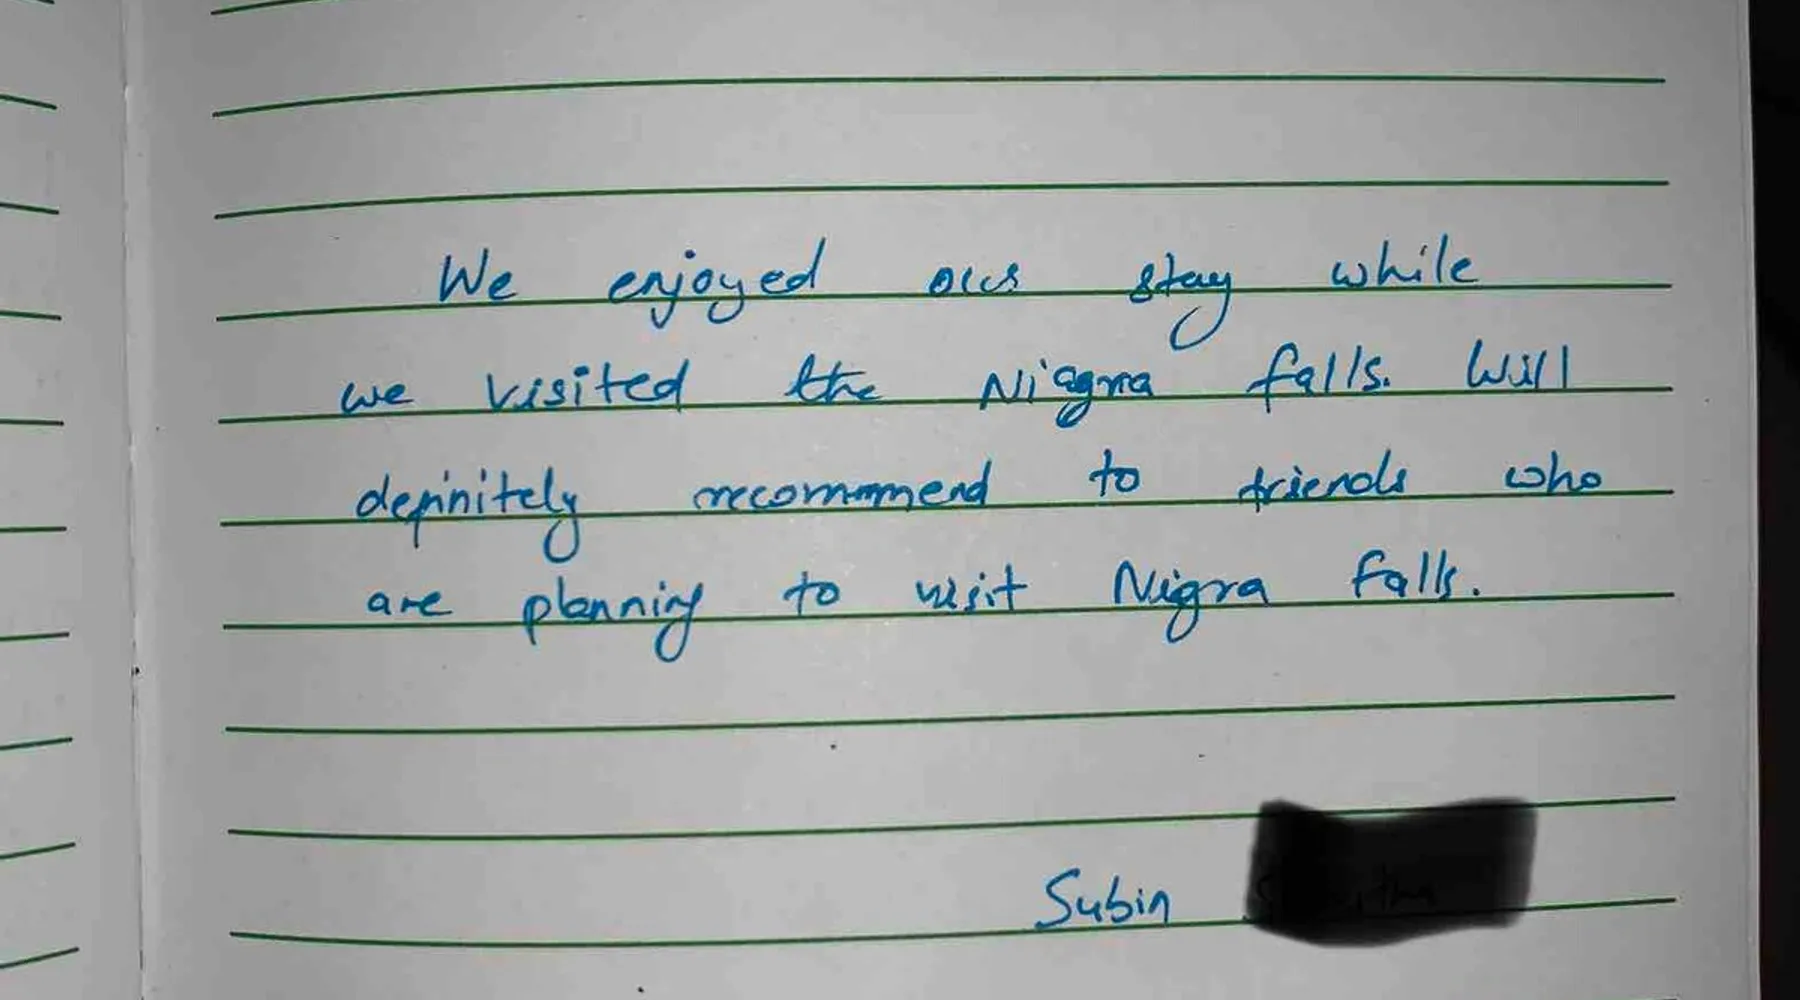 We enjoyed our stay while
we visited the Niagra falls. Will
definitely recommend to friends who
are planning to visit Nigra falls.
Subin